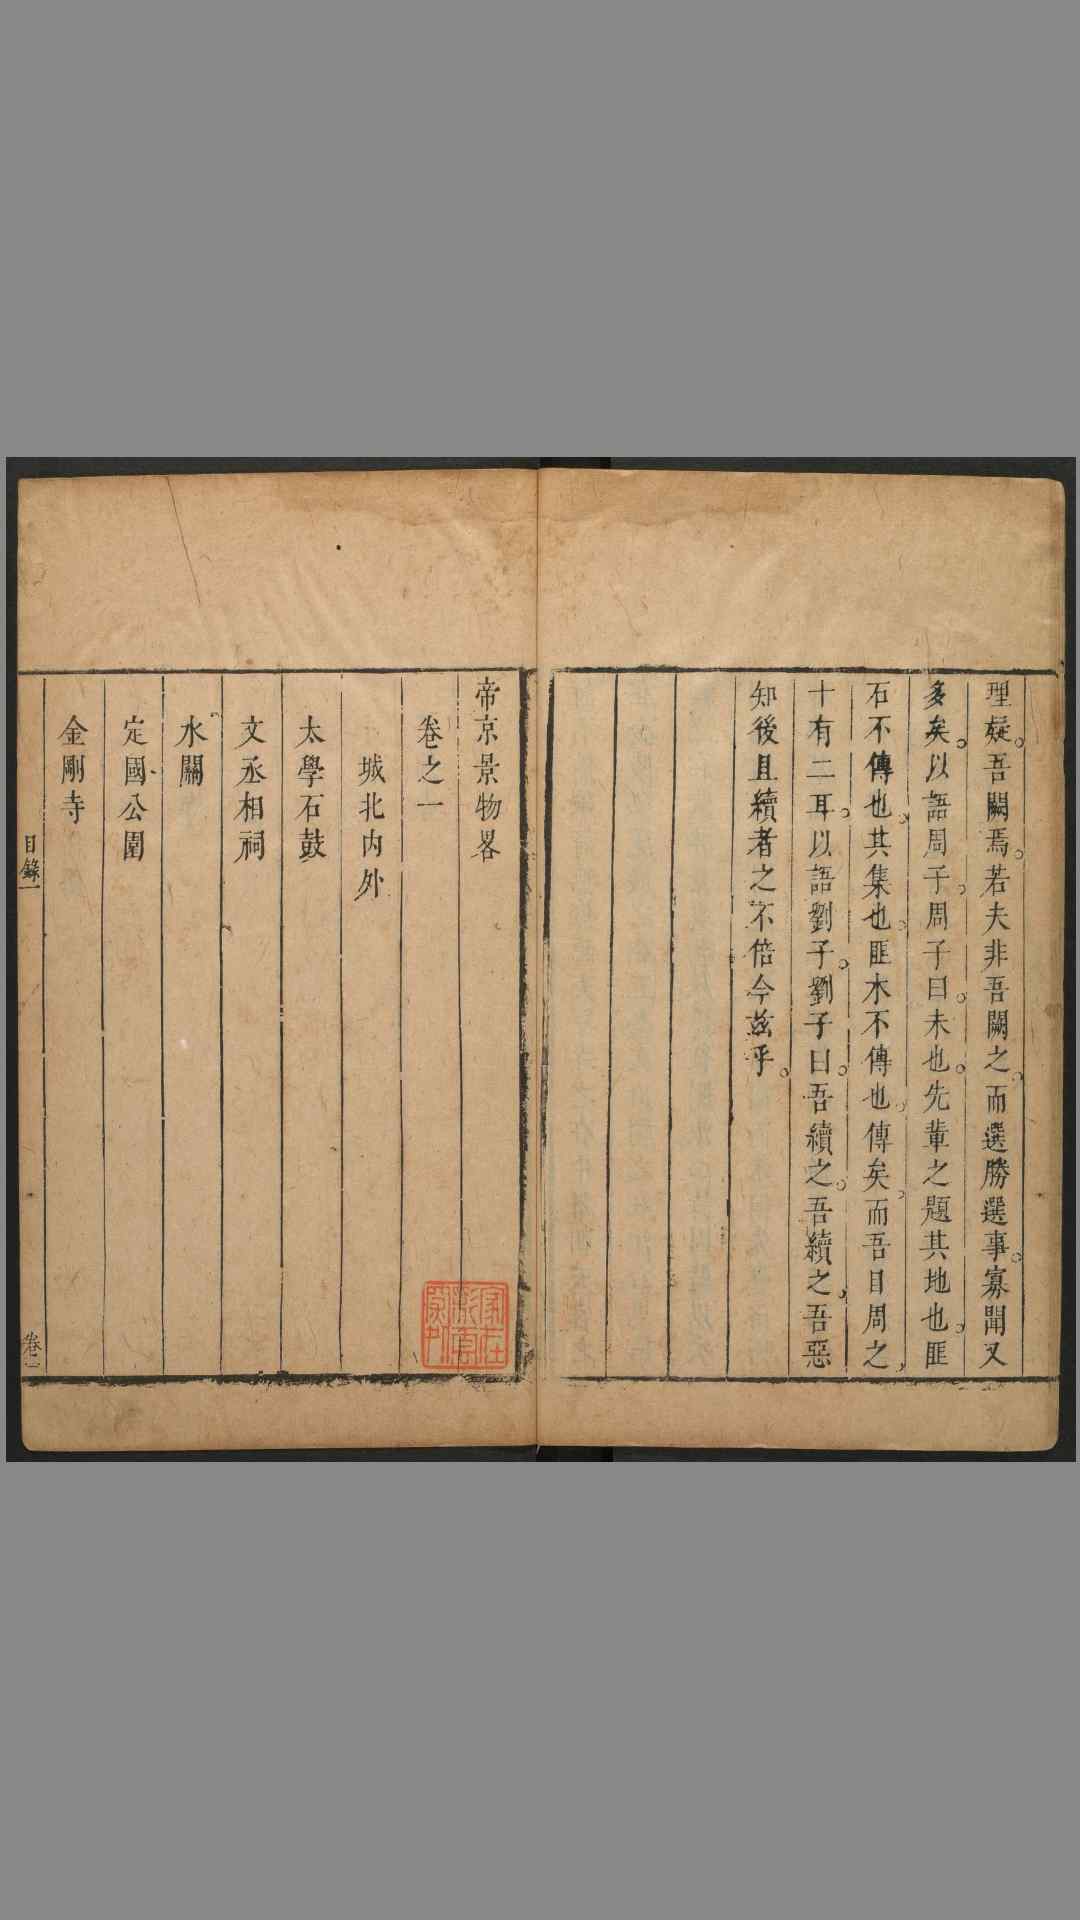 理疑吾闕焉若夫非吾闕之而選勝選事寡聞又
多矣以語周子周子曰未也先輩之題其地也匪
石不傳也其集也匪木不傳也傳矣而吾目周之
十有二耳以語劉子劉子曰吾續之吾續之吾惡
知後且續者之不倍今茲乎
帝京景物畧
卷之一
城北内外
太學石鼓
文丞相祠
水關
定國公園
金剛寺
目錄一
卷一